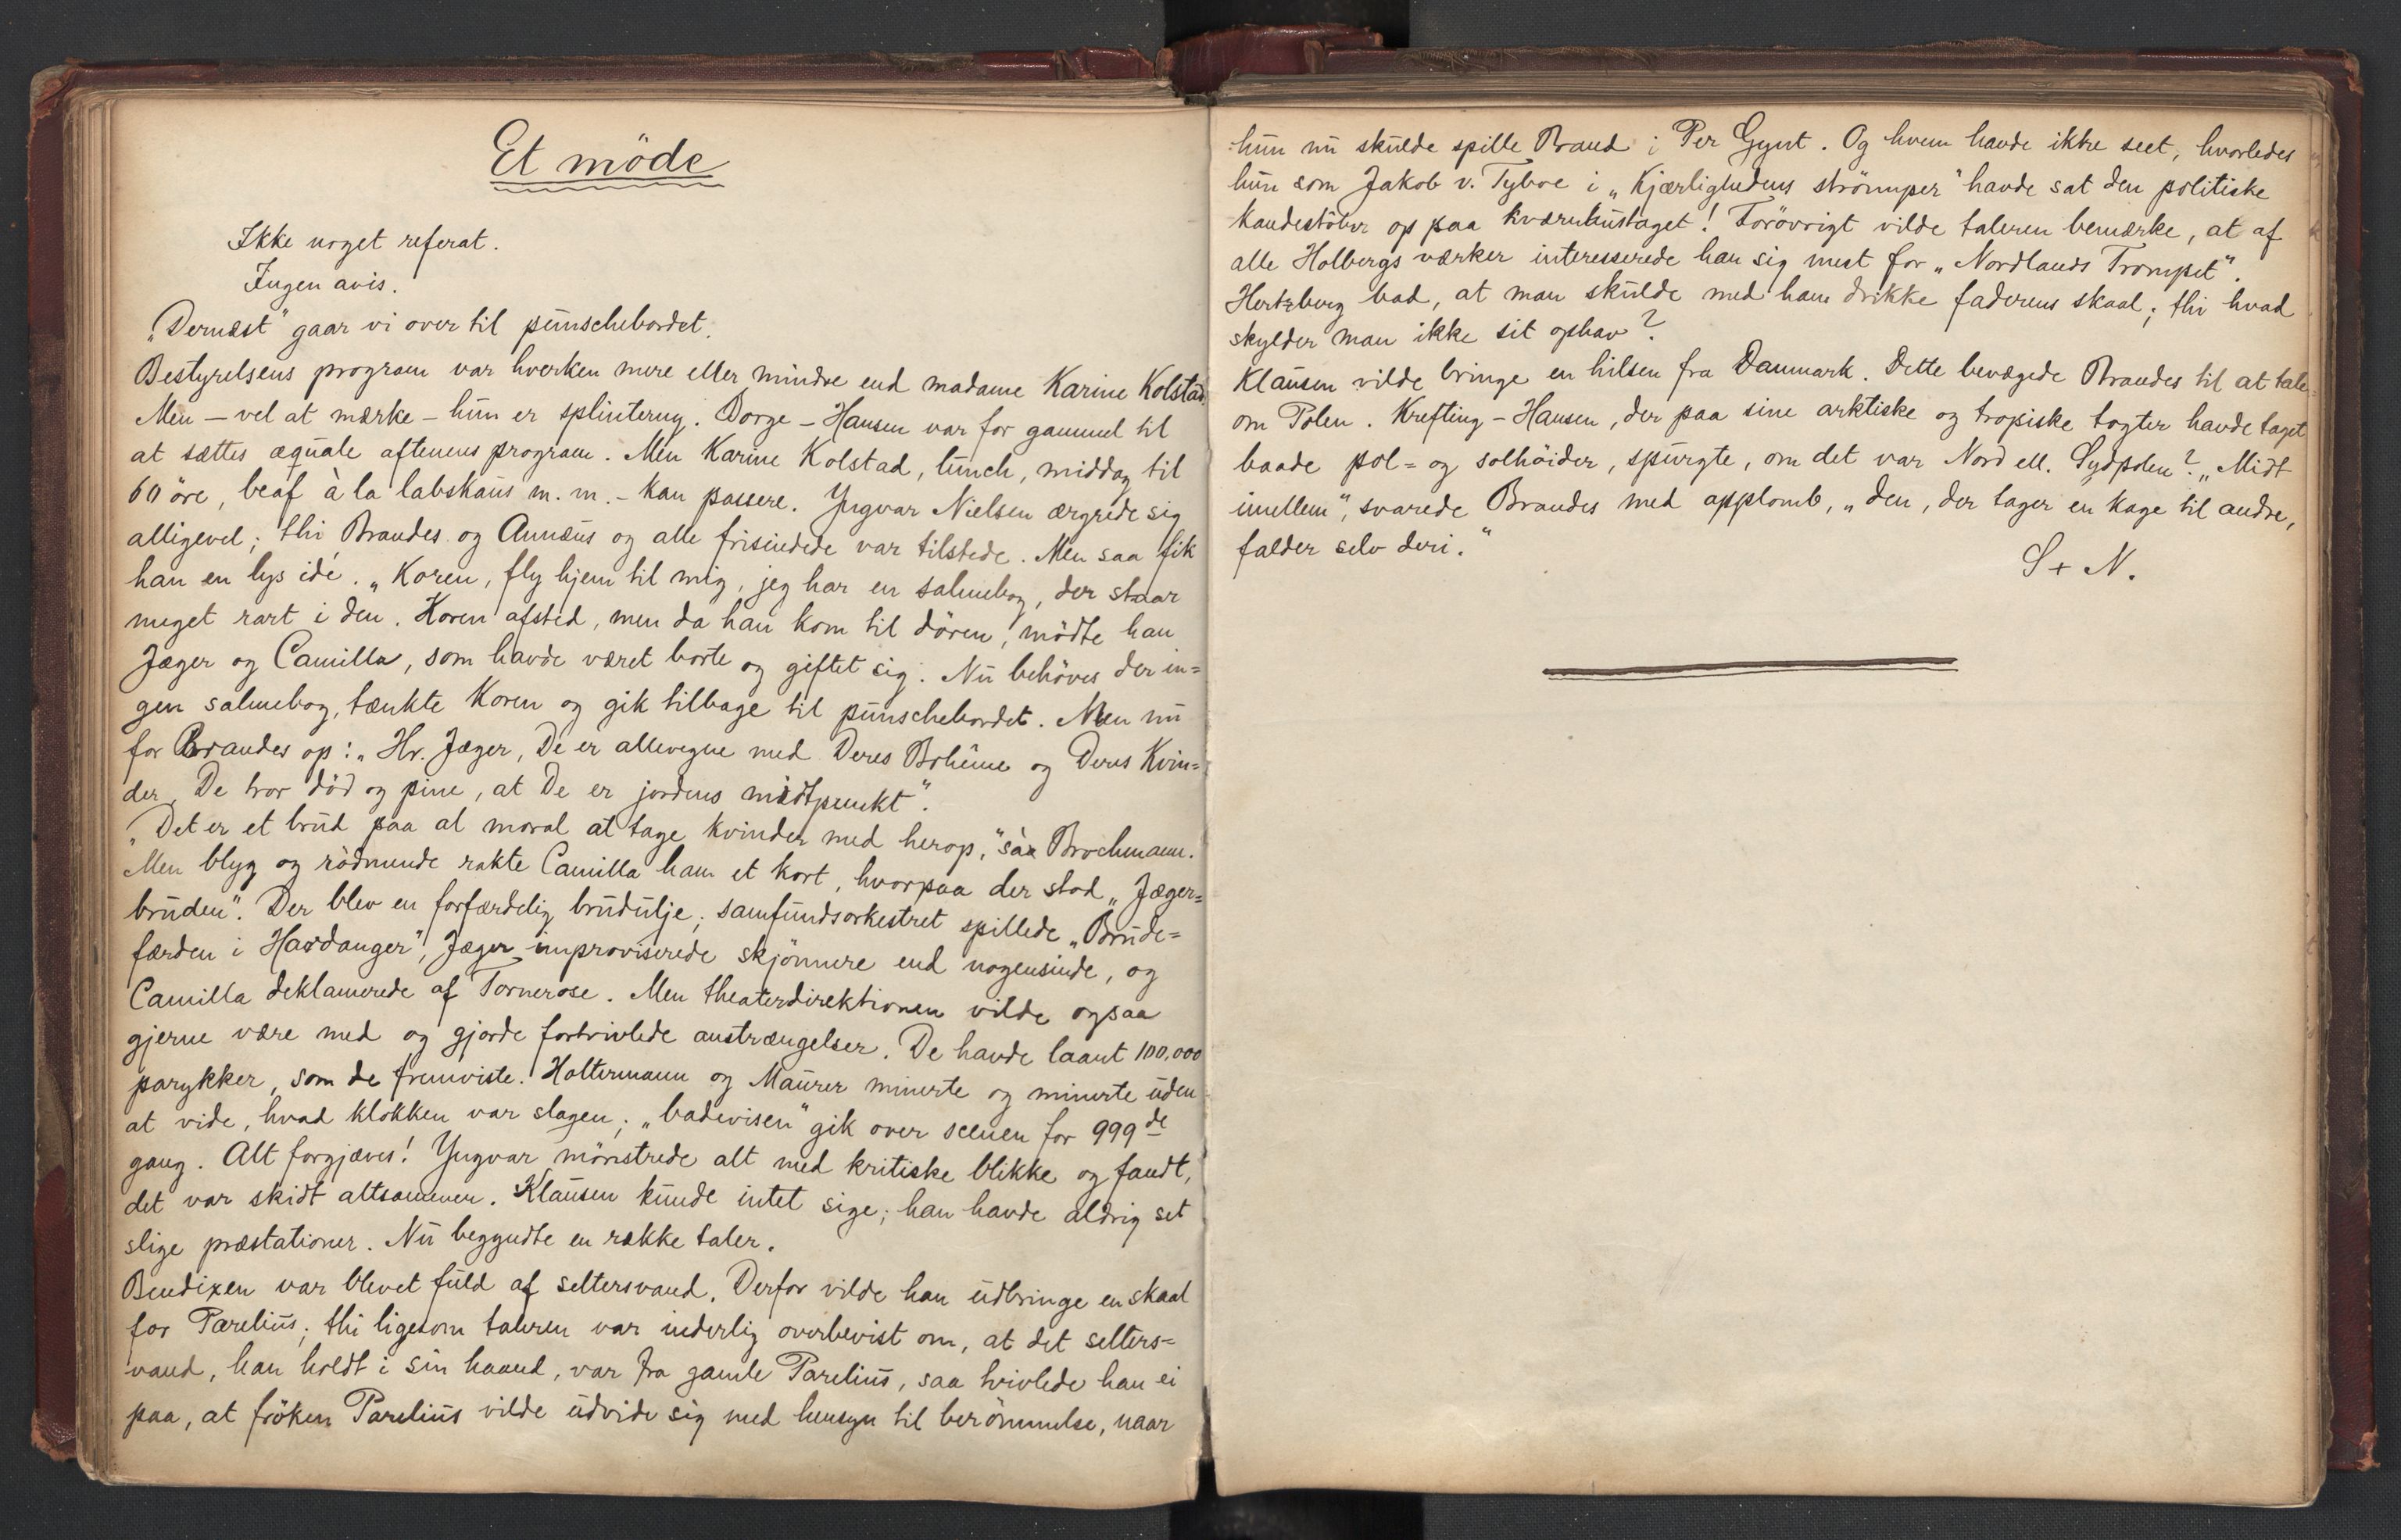 Et möde
Ikke noget referat.
Ingen avis.
„Dernæst" gaar vi over til punschebordet.
Bestyrelsens program var hverken mere eller mindre end madame Karine Kolstad.
Men – vel at mærke – hun er splinterny. Dorge-Hansen var for gammel til
at sættes æquale aftenens program. Men Karine Kolstad, lunch, middag til
60 öre, beaf à la labskaus m. m. – kan passere. Yngvar Nielsen ærgrede sig
alligevel; thi Brandes og Annæus og alle frisindede var tilstede. Men saa fik
han en lys idé. „Koren, fly hjem til mig, jeg har en salmebog, der staar
meget rart i den. Koren afsted, men da han kom til dören, mödte han
Jæger og Camilla, som havde været borte og giftet sig. Nu behöves der in=
gen salmebog, tænkte Koren og gik tilbage til punschebordet. Men nu
for Brandes op: „Hr. Jæger, De er allevegne med Deres Bohême og Deres Kvin=
der, De tror död og pine, at De er jordens midtpunkt".
„Det er et brud paa al moral at tage kvinder med herop," sa Brochmann.
Men blyg og rödmende rakte Camilla ham et kort, hvorpaa der stod „Jæger=
bruden". Der blev en forfærdelig brudulje; samfundsorkestret spillede „Brude=
færden i Hardanger", Jæger improviserede skjönnere end nogensinde, og
Camilla deklamerede af Tornerose. Men theaterdirektionen vilde ogsaa
gjerne være med og gjorde fortvivlede anstrængelser. De havde laant 100,000
parykker, som de fremviste. Holtermann og Maurer minerte og minerte uden
at vide, hvad klokken var slagen; „badevisen" gik over scenen for 999de
gang. Alt forgjæves! Yngvar mönstrede alt med kritiske blikke og fandt,
det var skidt altsammen. Klausen kunde intet sige; han havde aldrig set
slige præstationer. Nu begyndte en række taler.
Bendixen var blevet fuld af seltersvand. Derfor vilde han udbringe en skaal
for Parelius; thi ligesom taleren var inderlig overbevist om, at det selters=
vand, han holdt i sin haand, var fra gamle Parelius, saa tvivlede han ei
paa, at fröken Parelius vilde udvide sig med hensyn til berömmelse, naar
hun nu skulde spille Brand i Per Gynt. Og hvem havde ikke seet, hvorledes
hun som Jakob v. Tyboe i „Kjærlighedens strömper" havde sat den politiske
Kandestöber op paa kværnhustaget! Forövrigt vilde taleren bemærke, at af
alle Holbergs værker interesserede han sig mest for „Nordlands Trompet".
Hertzberg bad, at man skulde med ham drikke faderens skaal; thi hvad
skylder man ikke sit ophav?
Klausen vilde bringe en hilsen fra Danmark. Dette bevægede Brandes til at tale
om Polen. Krefting-Hansen, der paa sine arktiske og tropiske togter havde taget
baade pol= og solhöider, spurgte, om det var Nord ell. Sydpolen? „Midt
imellem", svarede Brandes med applomb, „den, der tager en kage til andre,
falder selv deri."
S + N.